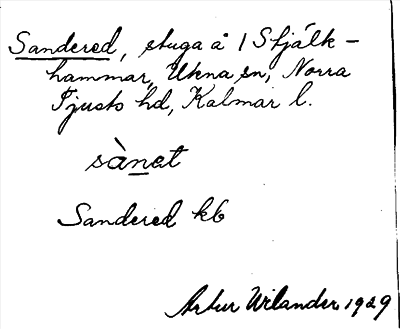 Sandered, stuga å 1 Stjälk-
hammar, Ukna sn, Norra
Tjusts hd, Kalmar l.
sànet
Sandered kb
Artur Wilander 1929